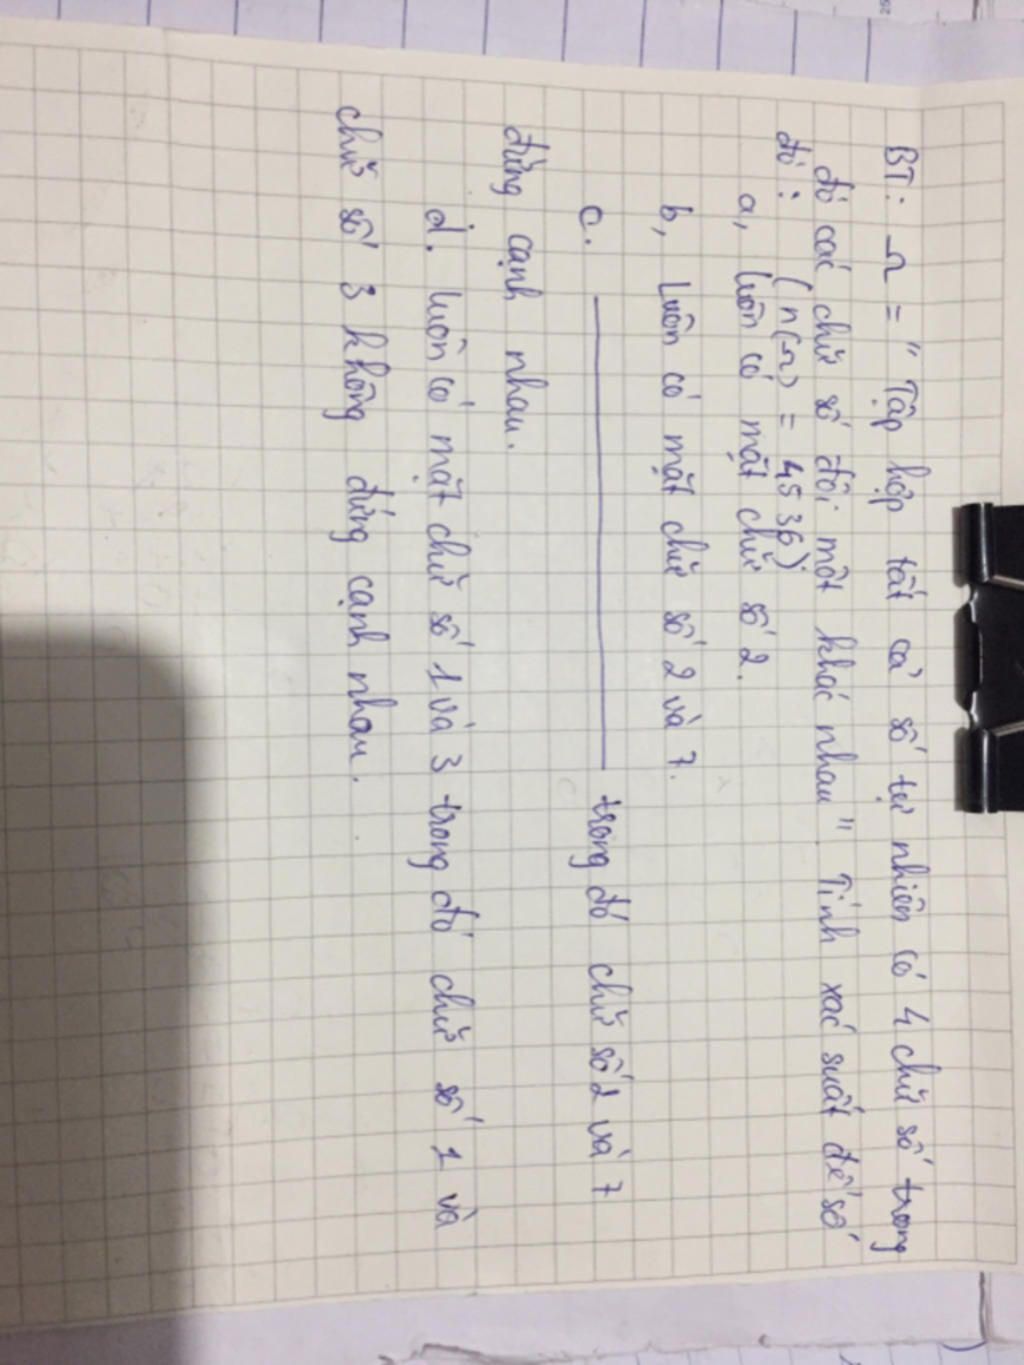 BT: Ω = " Tập hợp tất cả số tự nhiên có 4 chữ số trong
đó các chữ số đôi một khác nhau " Tính xác suất để số
đó : (n(Ω) = 4536)
a, luôn có mặt chữ số 2.
b, luôn có mặt chữ số 2 và 7.
c. ———————— trong đó chữ số 2 và 7
đứng cạnh nhau.
d. luôn có mặt chữ số 1 và 3 trong đó chữ số 1 và
chữ số 3 không đứng cạnh nhau.